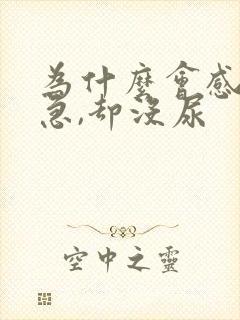 為什麼會感
急,卻沒尿
空中之靈